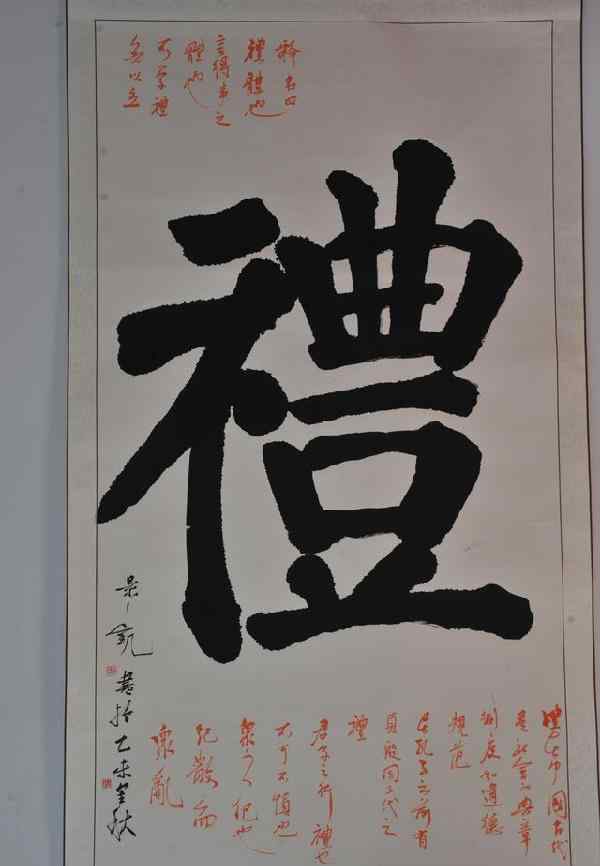 釋名曰
禮體也
言得事之
體也
不學禮
無以立
禮
中國古代
社會的典章
制度和道德
規范
孔子以前有
夏殷周三代之
禮
君子之行禮也
不可不慎也
眾之紀也
紀散而
眾亂
景凱書於乙未金秋